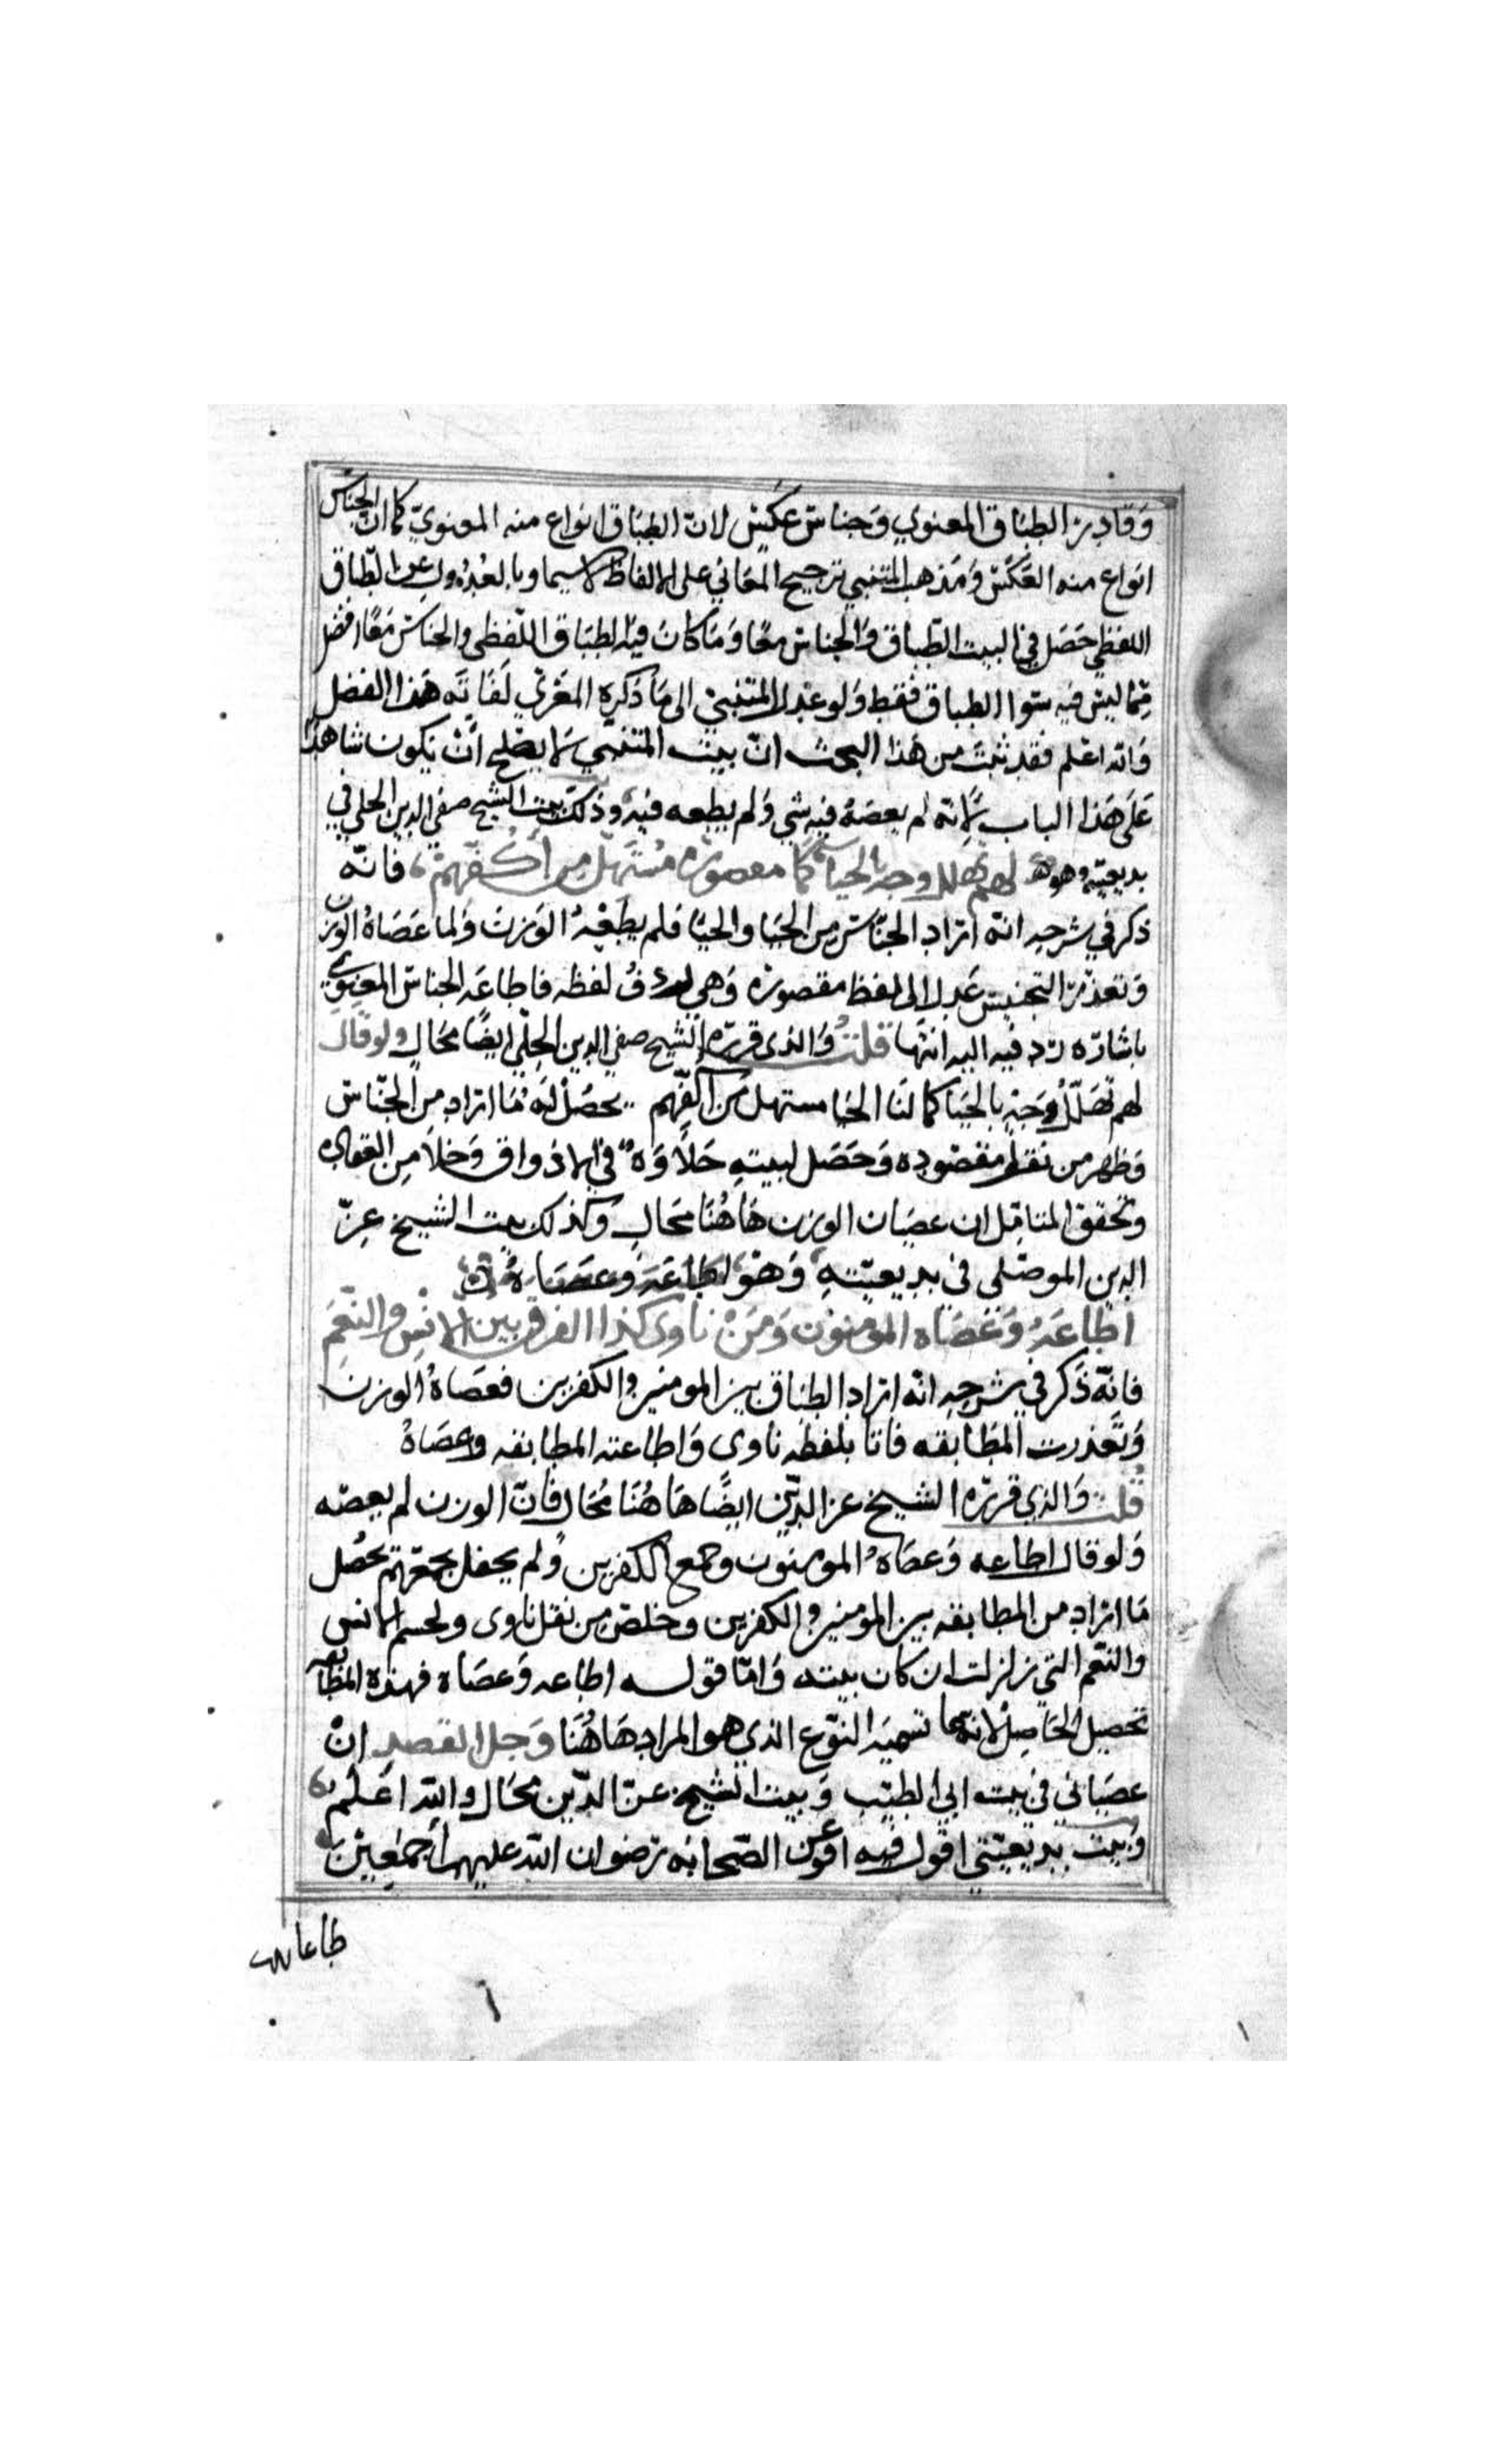 وَقادِرٌ الطبَاق المعنوي وَجناس عَكسٍ لانّ الطبَاق انواع منه المعنويّ كما انّ الجناسَ
انواع منه العَكسُ وَمَذهب المتنبي ترجيح المعَاني على الالفاظ لاسيما وبالعدُولِ عن الطّباق
اللفظي حَصَل في البيت الطّباق وَالجناس معًا وَمَا كانَ فيه الطبَاق اللّفظي والجناس مَعًا افضل
مِمّا ليسَ فيه سوا الطباق فقط وَلو عَدل المتنبيّ الى مَا ذكره المغربي لفَاتَه هَذا الفضل
وَالله اعْلم فقد ثبتَ من هَذا البحث انّ بيت المتنبّي لا يصْلح أنْ يكون شاهدًا
عَلَى هَذا الباب لانّه لم يعصَهُ فيه شي وَلم يطعه فيه وذلكَ بيت الشّيخ صفي الدين الحلي في
بديعيّته وهو لهم تهلل وجه بالحيا كما مقصورة مُسْتهل من أكفّهم فانّه
ذكر في شرحهِ انّه ارَاد الجنّاس من الحَيا والحيَا فلم يطِعْهُ الوَزن وَلما عَصَاهُ الوزن
وَتعذّرَ التجنيس عَدل الى لفظ مقصورة وَهي ردفُ لفظه فاطاعَه الجناسُ المعنويّ
باشارَة ردفيه اليه انتهَا قلتُ وَالذى قررَه الشّيخ صفي الدين الحلّي ايضًا محَال ولو قال
لهم تَهَلّلُ وَجهٍ بالحَيا كما لنَا الحَيا مستهل من اكفّهم يحصُلْ له مَا ارَاد من الجنّاس
وَظهر من ثقل مقصُوره وَحَصَل لبيتهِ حَلاوَةٌ في الاذواق وَخلاَ مِن العقَادَه
وتحقق المتامّل ان عصيَان الوزن هَاهُنا محَال وكذلك بيت الشيخ عِزّ
الدين الموصّلي في بديعيّتهِ وَهوَ اطاعَهَ وَعصَاهُ
اطاعَهُ وَعَصَاه المومنون وَمَنْ ناوى كذا الفرق بين الانْسِ والنّعَمِ
فانّه ذَكر في شرحِهِ انّه ارَاد الطبَاق بين المومنين والكفرين فعصَاهُ الوزن
وَتعَذرت المطَابقه فاتا بلفظه ناوى وَاطاعته المطابقه وعصَاهُ
قُلتُ وَالذي قررَه الشيخ عز الدّين ايضًا هَاهُنَا مُحَال فانّ الوزن لم يعصه
وَلو قال اطاعه وَعصَاهُ المومنون وجمع الكفرين وَلم يحفل بجمعهم يحصُل
مَا ارَاد من المطابقه بين المومنين والكفرين وخلصَ من ثقل ناوى الانس
والنعم التي زلزلت اركان بيته وَامّا قوله اطاعه وَعصَاه فهذه المطابقه
تحصيل الحَاصِل لانّهما تسميَة النّوع الذي هو المراد هَاهُنَا وَجل القصد انْ
عصيَاني في بيت ابي الطيّب وَبيت الشيخ عزّ الدّين محَال والله اعَلَم
وَبيت بديعيّتي اقول فيه عن الصّحابَه رضوان اللّه عليهم اجمَعِيْن
طاعاتهم